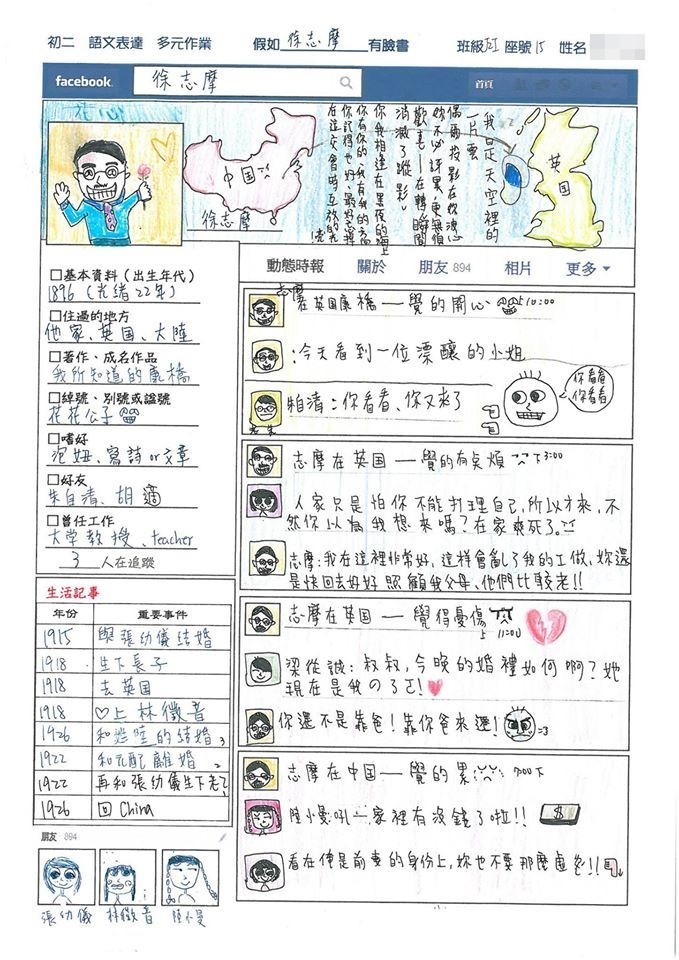 初二 語文表達 多元作業 假如徐志摩有臉書 班級 座號15 姓名
facebook 徐志摩 首頁
花心
中国
徐志摩
英国
我是天空裡的
一片雲
偶爾投影在你的波心
妳不必訝異，更無須
歡喜—在轉瞬間
消滅了蹤影。
你我相逢在黑夜的海上
你有你的，我有我的方向
你記得也好，最好忘掉
在這交會時互放的光亮
動態時報 關於 朋友 894 相片 更多
□基本資料（出生年代）
1896（光緒22年）
□住過的地方
他家、英国、大陸
□著作、成名作品
我所知道的康橋
□綽號、別號或諡號
花花公子
□嗜好
泡妞、寫詩or文章
□好友
朱自清、胡適
□曾任工作
大学教授、teacher
3 人在追蹤
生活記事
年份 重要事件
1915 與張幼儀結婚
1918 生下長子
1918 去英国
1918 ♡上林徽音
1926 和 陸的結婚 3
1922 和元配離婚 2
1922 再和張幼儀生下老二
1926 回China
朋友 894
張幼儀 林徽音 陸小曼
志摩在英国康橋—覺的開心 上10:00
：今天看到一位漂釀的小姐
朱自清：你看看、你又來了
你看看
你看看
志摩在英国—覺的有点煩 下3:00
人家只是怕你不能打理自己，所以才來，不
然你以為我想來嗎？在家爽死了。
志摩：我在這裡非常好，這样會亂了我的工做、妳還
是快回去好好照顧我父母、他們比較老!!
志摩在英国—覺得憂傷 上11:00
梁從誡：叔叔，今晚的婚禮如何啊？她
現在是我の了ㄛ！♥
你還不是靠爸！靠你爸來選！ =3
志摩在中国—覺的累 7:00下
陸小曼：吼—家裡有沒錢了啦!! $
看在俺是前妻的身份上，妳也不要那麼虛 !!